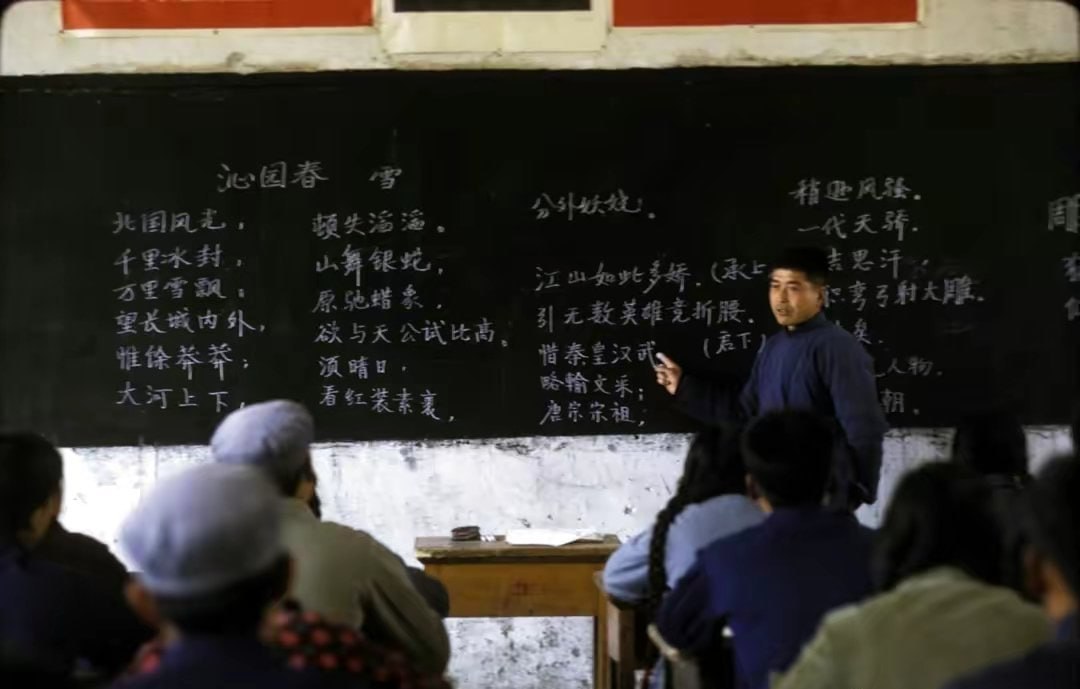 沁园春 雪
北国风光，
千里冰封，
万里雪飘。
望长城内外，
惟馀莽莽；
大河上下，
顿失滔滔。
山舞银蛇，
原驰蜡象，
欲与天公试比高。
须晴日，
看红装素裹，
分外妖娆。
江山如此多娇，（承上
引无数英雄竞折腰。
（启下）
惜秦皇汉武
略输文采；
唐宗宋祖，
稍逊风骚。
一代天骄，
吉思汗，
识弯弓射大雕。
矣，
人物，
朝。
雕